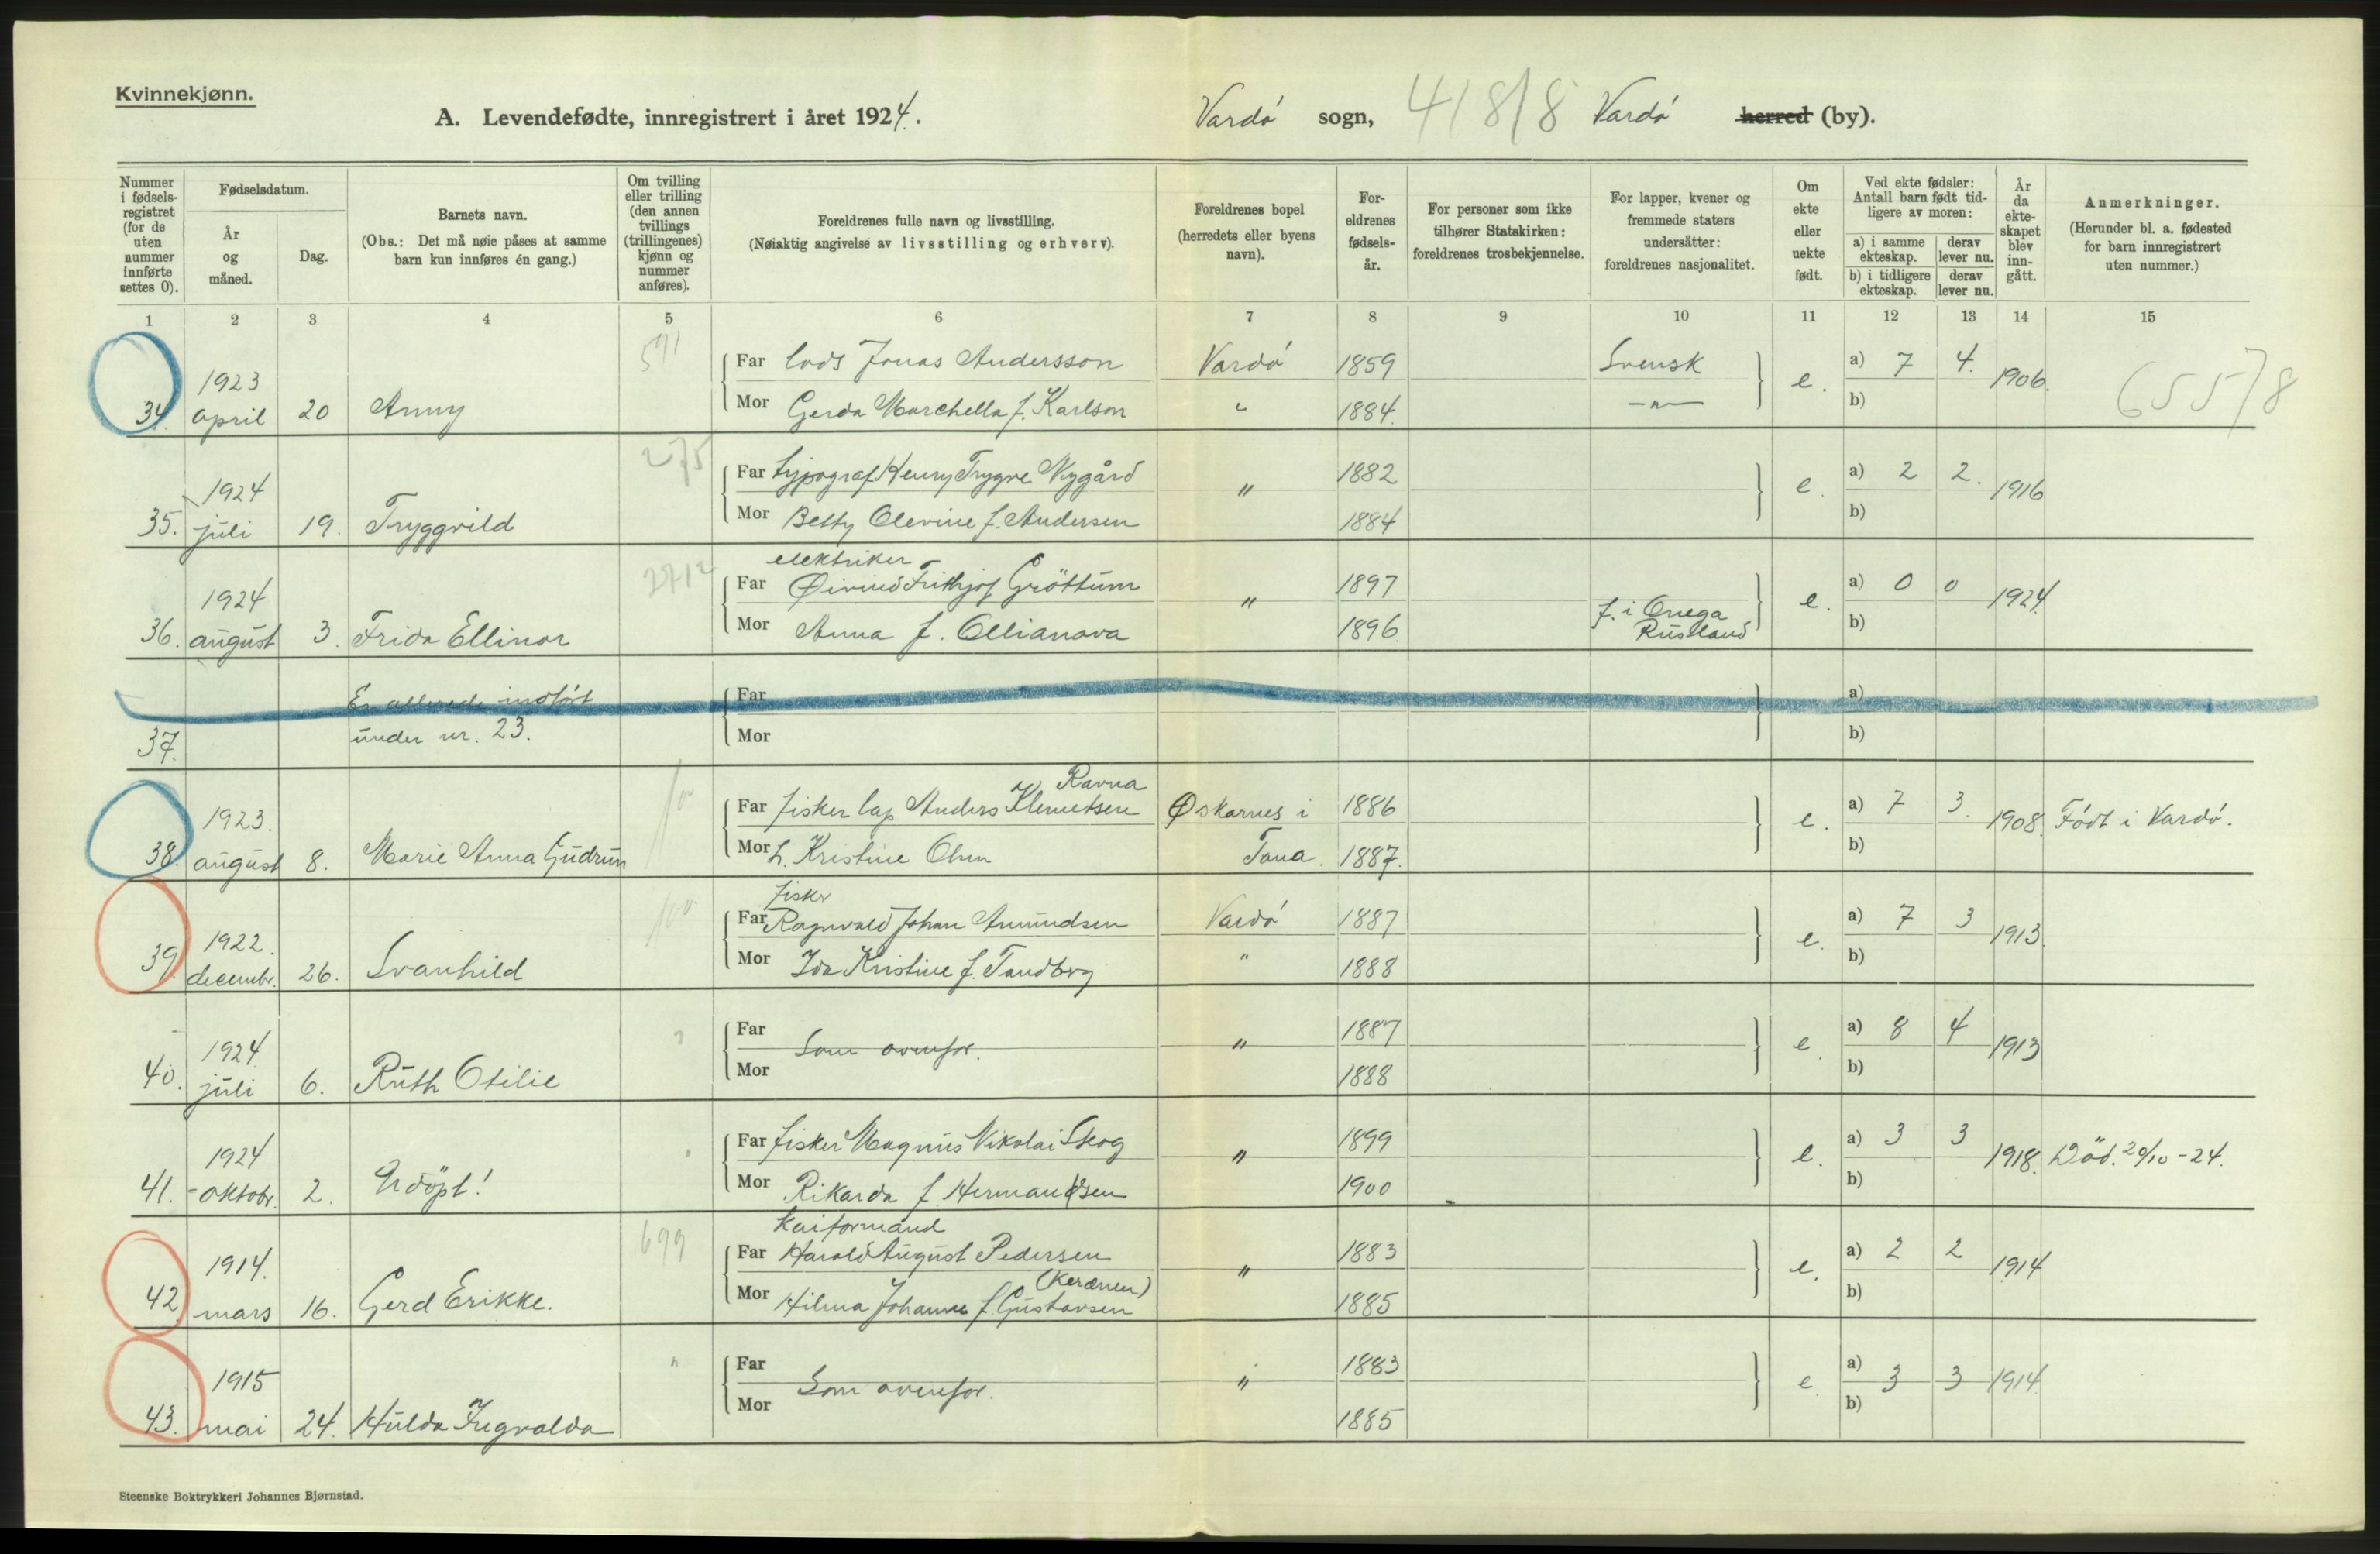 Kvinnekjønn.
A. Levendefødte, innregistrert i året 1924. Vardø sogn, 41818 Vardø herred (by).
Nummer i fødselsregistret (for de uten nummer innførte settes 0).
Fødselsdatum.
År og måned.
Dag.
Barnets navn.
(Obs.: Det må nøie påses at samme barn kun innføres én gang.)
Om tvilling eller trilling (den annen tvillings (trillingenes) kjønn og nummer anføres).
Foreldrenes fulle navn og livsstilling.
(Nøiaktig angivelse av livsstilling og erhverv).
Foreldrenes bopel (herredets eller byens navn).
Foreldrenes fødselsår.
For personer som ikke tilhører Statskirken: foreldrenes trosbekjennelse.
For lapper, kvener og fremmede staters undersåtter: foreldrenes nasjonalitet.
Om ekte eller uekte født.
Ved ekte fødsler: Antall barn født tidligere av moren:
a) i samme ekteskap. derav lever nu.
b) i tidligere ekteskap. derav lever nu.
År da ekteskapet blev inngått.
Anmerkninger.
(Herunder bl. a. fødested for barn innregistrert uten nummer.)
1 2 3 4 5 6 7 8 9 10 11 12 13 14 15
34. 1923 april 20 Anny 591 Far lods Jonas Andersson Vardø 1859 Svensk e. a) 7 4. 1906. 655/8
Mor Gerda Marchella f. Karlson " 1884. -"- b)
35. 1924 juli 19. Tryggvild 275 Far typograf Henry Trygve Nygård " 1882 e. a) 2 2. 1916
Mor Betty Olevine f. Andersen 1884 b)
36. 1924 august 3. Frida Ellinor 2712 elektriker
Far Øivind Frithjof Gröttum " 1897 e. a) 0 0 1924.
Mor Anna f. Ollianova 1896. f. i Onega Russland b)
37. Er allerede indført under nr. 23. Far a)
Mor b)
38. 1923. august 8. Marie Anna Gudrun Ravna
Far fisker lap Anders Klemetsen Øskarnes i 1886 e. a) 7 3. 1908. Født i Vardø.
Mor L. Kristine Olsen Tana. 1887. b)
39. 1922. decembr. 26. Svanhild fisker
Far Ragnvald Johan Amundsen Vardø 1887 e. a) 7 3 1913.
Mor Ida Kristine f. Tandberg " 1888 b)
40. 1924. juli 6. Ruth Otilie Far Som ovenfor. " 1887 e. a) 8 4 1913
Mor 1888 b)
41. 1924 oktobr. 2. Udöpt! Far fisker Magnus Nikolai Skog " 1899 e. a) 3 3 1918. Död. 20/10 - 24.
Mor Rikarda f. Hermandsen 1900 b)
42. 1914. mars 16. Gerd Erikke. 699 kaiformand
Far Harald August Pedersen " 1883 e. a) 2 2 1914
(Kerænen)
Mor Hilma Johanne f. Gustavsen 1885 b)
43. 1915 mai 24. Hulda Ingvalda " Far Som ovenfor. " 1883 e. a) 3 3 1914.
Mor 1885 b)
Steenske Boktrykkeri Johannes Bjørnstad.